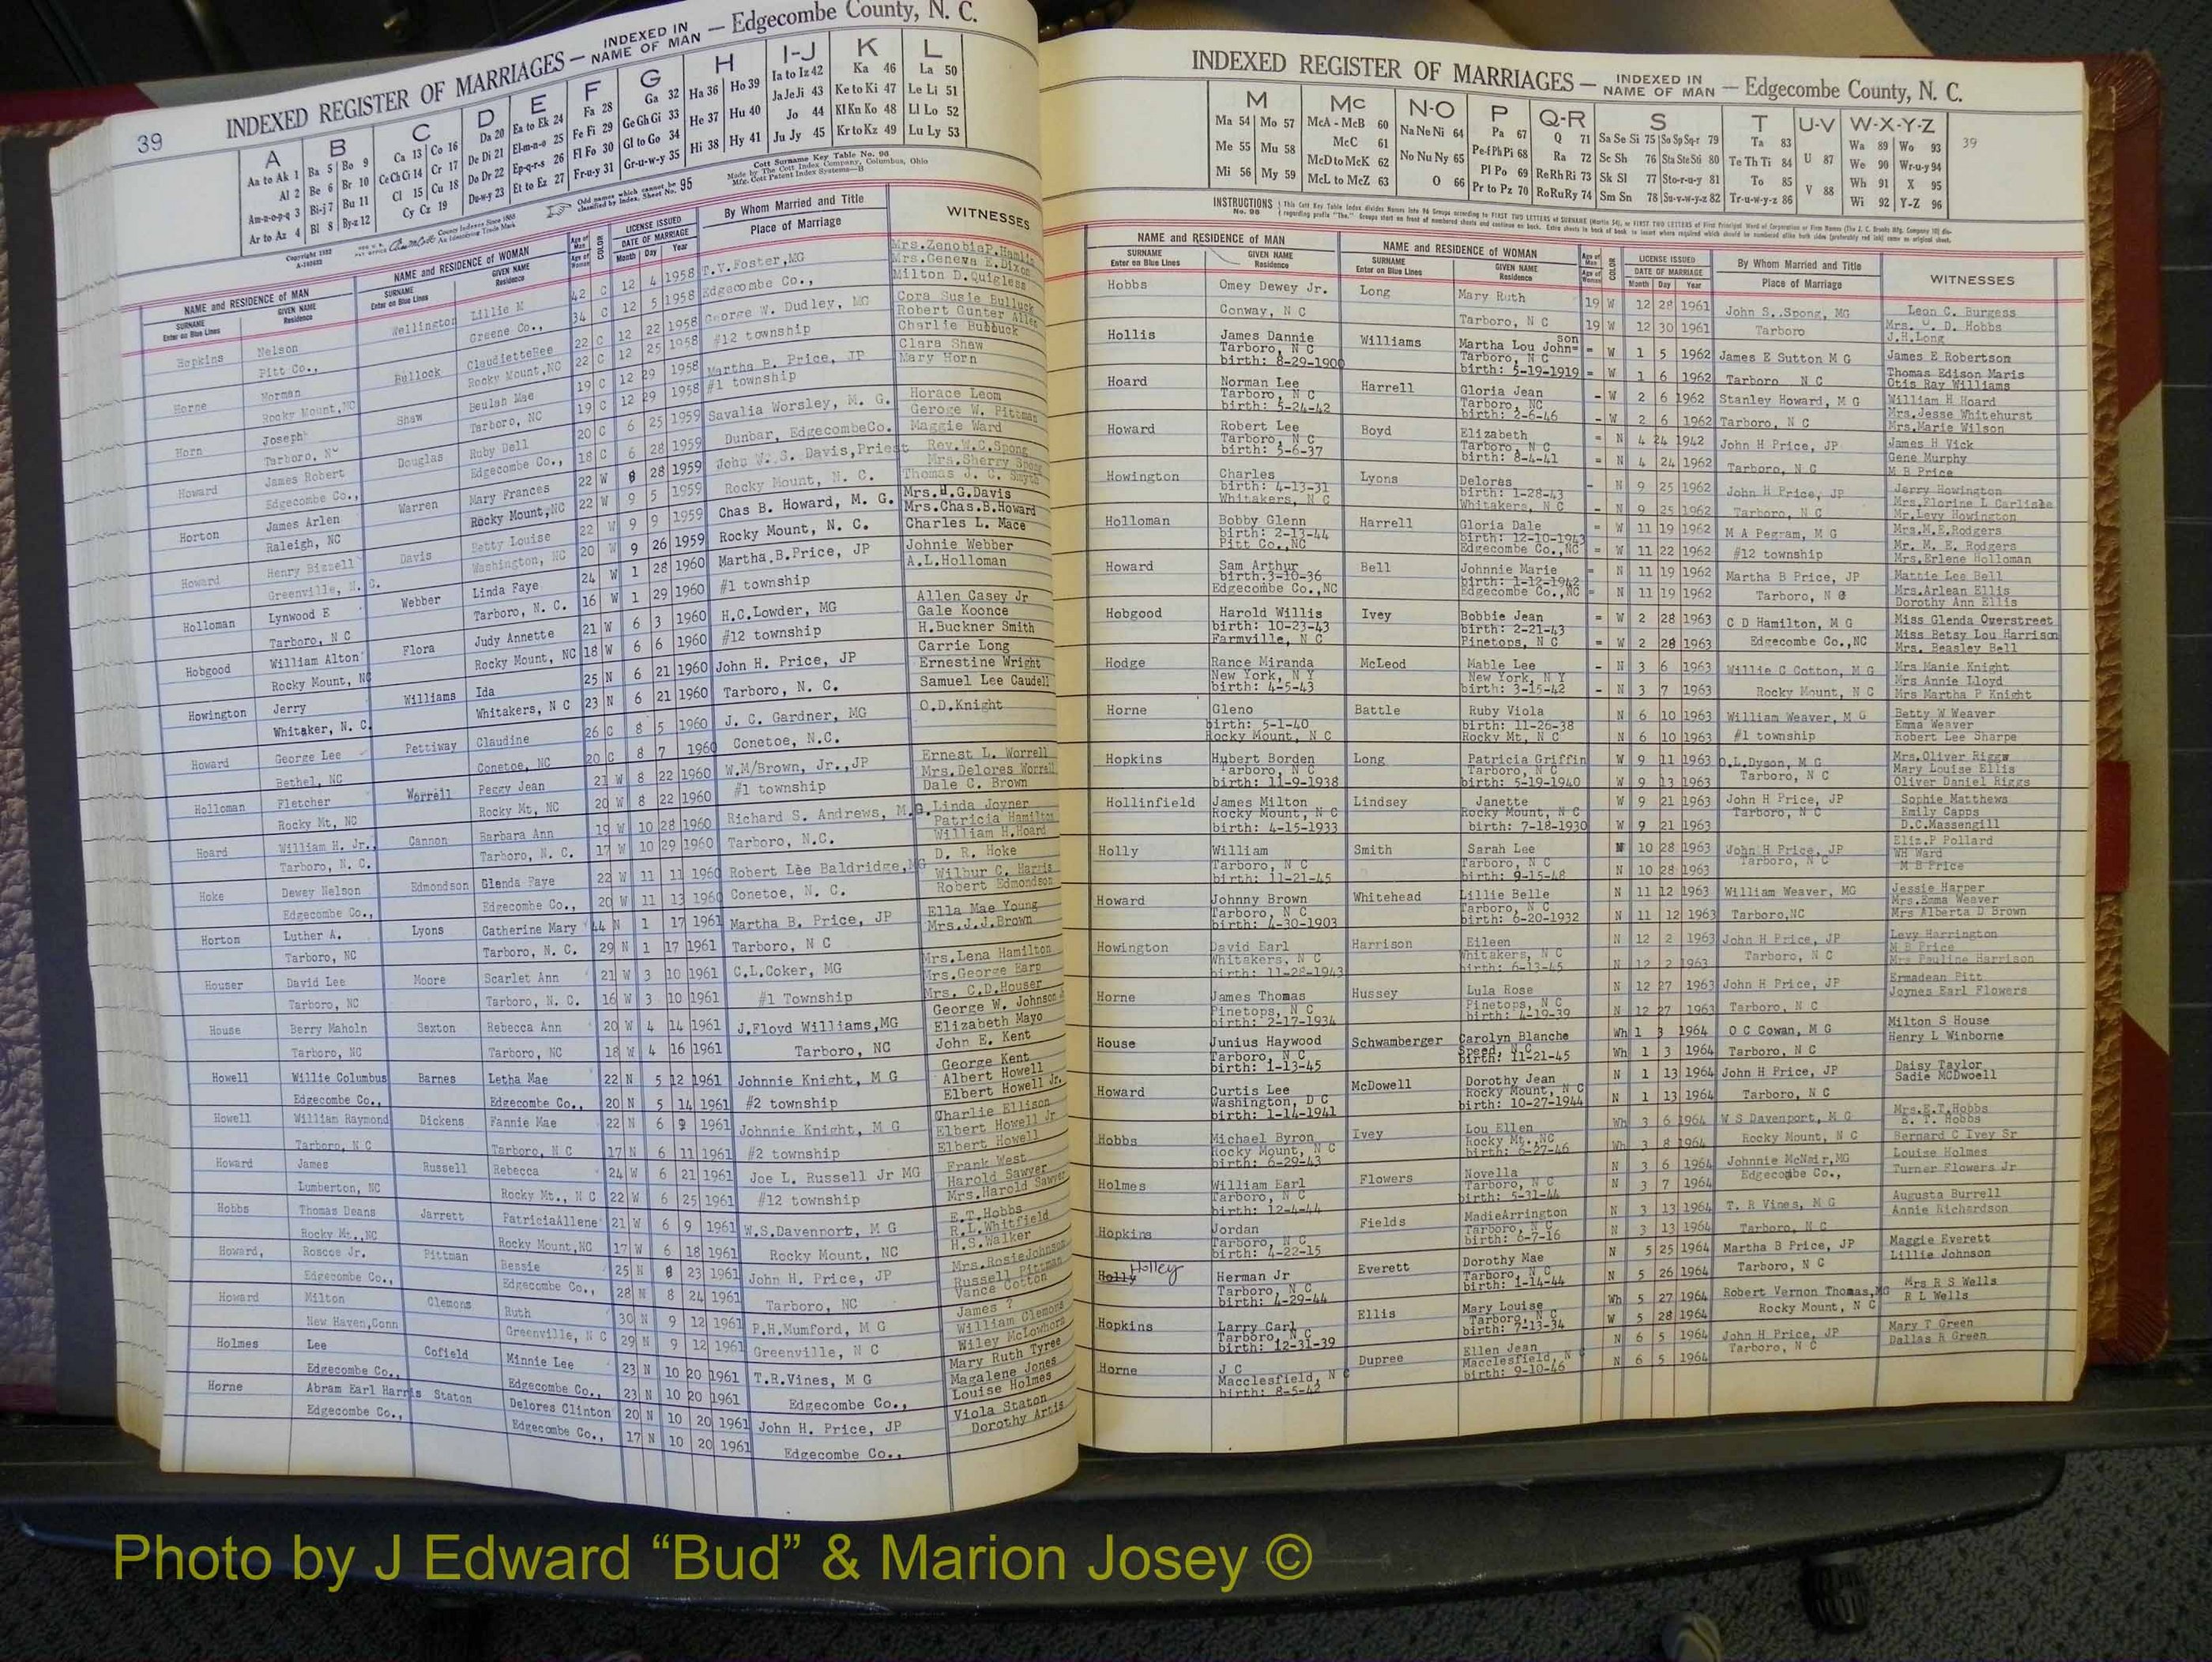 39
INDEXED REGISTER OF MARRIAGES — INDEXED IN NAME OF MAN — Edgecombe County, N. C.
A B C D E F G H I-J K L
Aa to Ak 1 Ba 5 Bo 9 Ca 13 Co 16 Da 20 Ea to Ek 24 Fa 28 Ga 32 Ha 36 Ho 39 Ia to Iz 42 Ka 46 La 50
Al 2 Be 6 Br 10 Ce Ch Ci 14 Cr 17 De Di 21 El-m-n-o 25 Fe Fi 29 Ge Gh Gi 33 He 37 Hu 40 Ja Je Ji 43 Ke to Ki 47 Le Li 51
Am-n-o-p-q 3 Bi-j 7 Bu 11 Cl 15 Cu 18 Do Dr 22 Ep-q-r-s 26 Fl Fo 30 Gl to Go 34 Hi 38 Hy 41 Jo 44 Kl Kn Ko 48 Ll Lo 52
Ar to Az 4 Bl 8 By-z 12 Cy Cz 19 Du-w-y 23 Et to Ez 27 Fr-u-y 31 Gr-u-w-y 35 Ju Jy 45 Kr to Kz 49 Lu Ly 53
NAME and RESIDENCE OF MAN NAME and RESIDENCE OF WOMAN LICENSE ISSUED By Whom Married and Title WITNESSES
SURNAME Enter on Blue Lines GIVEN NAME Residence SURNAME Enter on Blue Lines GIVEN NAME Residence COLOR DATE OF MARRIAGE Month Day Year Place of Marriage
Hopkins Nelson Wellington Lillie M 42 C 12 4 1958 T.V.Foster,MG Mrs.ZenobiaP.Hamlin
Pitt Co., Greene Co., 34 C 12 5 1958 Edgecombe Co., Mrs.Geneva E.Dixon
Milton D.Quigless
Horne Norman Bullock ClaudietteRee 22 C 12 22 1958 George W. Dudley, MG Cora Susie Bulluck
Rocky Mount,NC Rocky Mount,NC 22 C 12 25 1958 #12 township Robert Gunter Allen
Charlie Bulluck
Horn Joseph Shaw Beulah Mae 19 C 12 29 1958 Martha B. Price, JP Clara Shaw
Tarboro, NC Tarboro, NC 19 C 12 29 1958 #1 township Mary Horn
Howard James Robert Douglas Ruby Dell 20 C 6 25 1959 Savalia Worsley, M. G. Horace Leom
Edgecombe Co., Edgecombe Co., 18 C 6 28 1959 Dunbar, EdgecombeCo. Geroge W. Pittman
Maggie Ward
Horton James Arlen Warren Mary Frances 22 W 8 28 1959 John W. S. Davis,Priest Rev.W.G.Spong
Raleigh, NC Rocky Mount,NC 22 W 9 5 1959 Rocky Mount, N. C. Mrs.Sherry Spong
Thomas J. C. Smyth
Howard Henry Bissell Davis Betty Louise 22 W 9 9 1959 Chas B. Howard, M. G. Mrs.H.G.Davis
Greenville, N. C. Washington, NC 20 W 9 26 1959 Rocky Mount, N. C. Mrs.Chas.B.Howard
Charles L. Mace
Holloman Lynwood E Webber Linda Faye 24 W 1 28 1960 Martha.B.Price, JP Johnie Webber
Tarboro, N C Tarboro, N. C. 16 W 1 29 1960 #1 township A.L.Holloman
Hobgood William Alton Flora Judy Annette 21 W 6 3 1960 H.C.Lowder, MG Allen Casey Jr
Rocky Mount, NC Rocky Mount, NC 18 W 6 6 1960 #12 township Gale Koonce
H.Buckner Smith
Howington Jerry Williams Ida 25 N 6 21 1960 John H. Price, JP Carrie Long
Whitaker, N. C. Whitakers, N C 23 N 6 21 1960 Tarboro, N. C. Ernestine Wright
Samuel Lee Caudell
Howard George Lee Pettiway Claudine 26 C 8 5 1960 J. C. Gardner, MG O.D.Knight
Bethel, NC Conetoe, NC 20 C 8 7 1960 Conetoe, N.C.
Holloman Fletcher Worrell Peggy Jean 21 W 8 22 1960 W.M/Brown, Jr.,JP Ernest L. Worrell
Rocky Mt, NC Rocky Mt, NC 20 W 8 22 1960 #1 township Mrs.Delores Worrell
Dale C. Brown
Hoard William H. Jr., Cannon Barbara Ann 19 W 10 28 1960 Richard S. Andrews, M.G. Linda Joyner
Tarboro, N. C. Tarboro, N. C. 17 W 10 29 1960 Tarboro, N.C. Patricia Hamilton
William H.Hoard
Hoke Dewey Nelson Edmondson Glenda Faye 22 W 11 11 1960 Robert Lee Baldridge,MG D. R. Hoke
Edgecombe Co., Edgecombe Co., 20 W 11 13 1960 Conetoe, N. C. Wilbur C. Harris
Robert Edmondson
Horton Luther A. Lyons Catherine Mary 44 N 1 17 1961 Martha B. Price, JP Ella Mae Young
Tarboro, NC Tarboro, N. C. 29 N 1 17 1961 Tarboro, N C Mrs.J.J.Brown
Houser David Lee Moore Scarlet Ann 21 W 3 10 1961 C.L.Coker, MG Mrs.Lena Hamilton
Tarboro, NC Tarboro, N. C. 16 W 3 10 1961 #1 Township Mrs.George Earp
Mrs. C.D.Houser
House Berry Maholn Sexton Rebecca Ann 20 W 4 14 1961 J.Floyd Williams,MG George W. Johnson
Tarboro, NC Tarboro, NC 18 W 4 16 1961 Tarboro, NC Elizabeth Mayo
John E. Kent
Howell Willie Columbus Barnes Letha Mae 22 N 5 12 1961 Johnnie Knight, M G George Kent
Edgecombe Co., Edgecombe Co., 20 N 5 14 1961 #2 township Albert Howell
Elbert Howell Jr.
Howell William Raymond Dickens Fannie Mae 22 N 6 9 1961 Johnnie Knight, M G Charlie Ellison
Tarboro, N C Tarboro, N C 17 N 6 11 1961 #2 township Elbert Howell Jr
Elbert Howell
Howard James Russell Rebecca 24 W 6 21 1961 Joe L. Russell Jr MG Frank West
Lumberton, NC Rocky Mt., N C 22 W 6 25 1961 #12 township Harold Sawyer
Mrs.Harold Sawyer
Hobbs Thomas Deans Jarrett PatriciaAllene 21 W 6 9 1961 W.S.Davenport, M G E.T.Hobbs
Rocky Mt.,NC Rocky Mount,NC 17 W 6 18 1961 Rocky Mount, NC R.L.Whitfield
H.S.Walker
Howard, Roscoe Jr. Pittman Bessie 25 N 8 23 1961 John H. Price, JP Mrs.RosieJohnson
Edgecombe Co., Edgecombe Co., 28 N 8 24 1961 Tarboro, NC Russell Pittman
Vance Cotton
Howard Milton Clemons Ruth 30 N 9 12 1961 P.H.Mumford, M G James ?
New Haven,Conn Greenville, N C 29 N 9 12 1961 Greenville, N C William Clemons
Wiley McLowhorn
Holmes Lee Cofield Minnie Lee 23 N 10 20 1961 T.R.Vines, M G Mary Ruth Tyree
Edgecombe Co., Edgecombe Co., 23 N 10 20 1961 Edgecombe Co., Magalene Jones
Louise Holmes
Horne Abram Earl Harris Staton Delores Clinton 20 N 10 20 1961 John H. Price, JP Viola Staton
Edgecombe Co., Edgecombe Co., 17 N 10 20 1961 Edgecombe Co., Dorothy Artis
INDEXED REGISTER OF MARRIAGES — INDEXED IN NAME OF MAN — Edgecombe County, N. C.
M Mc N-O P Q-R S T U-V W-X-Y-Z
Ma 54 Mo 57 McA - McB 60 Na Ne Ni 64 Pa 67 Q 71 Sa Se Si 75 So Sp Sq-r 79 Ta 83 Wa 89 Wo 93 39
Me 55 Mu 58 McC 61 No Nu Ny 65 Pe-f Ph Pi 68 Ra 72 Sc Sh 76 Sta Ste Sti 80 Te Th Ti 84 U 87 We 90 Wr-u-y 94
Mi 56 My 59 McD to McK 62 O 66 Pl Po 69 Re Rh Ri 73 Sk Sl 77 Sto-r-u-y 81 To 85 V 88 Wh 91 X 95
McL to McZ 63 Pr to Pz 70 Ro Ru Ry 74 Sm Sn 78 Su-v-w-y-z 82 Tr-u-w-y-z 86 Wi 92 Y-Z 96
NAME and RESIDENCE OF MAN NAME and RESIDENCE OF WOMAN LICENSE ISSUED By Whom Married and Title WITNESSES
SURNAME Enter on Blue Lines GIVEN NAME Residence SURNAME Enter on Blue Lines GIVEN NAME Residence COLOR DATE OF MARRIAGE Month Day Year Place of Marriage
Hobbs Omey Dewey Jr. Long Mary Ruth 19 W 12 28 1961 John S..Spong, MG Leon C. Burgess
Conway, N C Tarboro, N C 19 W 12 30 1961 Tarboro Mrs. D. Hobbs
J.H.Long
Hollis James Dannie Williams Martha Lou Johnson = W 1 5 1962 James E Sutton M G James E Robertson
Tarboro, N C Tarboro, N C Thomas Edison Maris
birth: 8-29-1900 birth: 5-19-1919 = W 1 6 1962 Tarboro N C Otis Ray Williams
Hoard Norman Lee Harrell Gloria Jean - W 2 6 1962 Stanley Howard, M G William H Hoard
Tarboro, N C Tarboro, NC Mrs.Jesse Whitehurst
birth: 5-24-42 birth: 2-6-46 - W 2 6 1962 Tarboro, N C Mrs.Marie Wilson
Howard Robert Lee Boyd Elizabeth = N 4 24 1942 John H Price, JP James H Vick
Tarboro, N C Tarboro, N C Gene Murphy
birth: 5-6-37 birth: 8-4-41 = N 4 24 1962 Tarboro, N C M B Price
Howington Charles Lyons Delores - N 9 25 1962 John H Price, JP Jerry Howington
birth: 4-13-31 birth: 1-28-43 Mrs.Florine L Carlisle
Whitakers, N C Whitakers, N C - N 9 25 1962 Tarboro, N C Mr.Levy Howington
Holloman Bobby Glenn Harrell Gloria Dale = W 11 19 1962 M A Pegram, M G Mrs.M.E.Rodgers
birth: 2-13-44 birth: 12-10-1943 Mr. M. E. Rodgers
Pitt Co.,NC Edgecombe Co.,NC = W 11 22 1962 #12 township Mrs.Erlene Holloman
Howard Sam Arthur Bell Johnnie Marie = N 11 19 1962 Martha B Price, JP Mattie Lee Bell
birth.3-10-36 birth: 1-12-1942 Mrs.Arlean Ellis
Edgecombe Co.,NC Edgecombe Co.,NC = N 11 19 1962 Tarboro, N C Dorothy Ann Ellis
Hobgood Harold Willis Ivey Bobbie Jean = W 2 28 1963 C D Hamilton, M G Miss Glenda Overstreet
birth: 10-23-43 birth: 2-21-43 Miss Betsy Lou Harrison
Farmville, N C Pinetops, N C = W 2 28 1963 Edgecombe Co.,NC Mrs. Beasley Bell
Hodge Rance Miranda McLeod Mable Lee - N 3 6 1963 Willie C Cotton, M G Mrs Manie Knight
New York, N Y New York, N Y Mrs Annie Lloyd
birth: 4-5-43 birth: 3-15-42 - N 3 7 1963 Rocky Mount, N C Mrs Martha P Knight
Horne Gleno Battle Ruby Viola N 6 10 1963 William Weaver, M G Betty W Weaver
birth: 5-1-40 birth: 11-26-38 Emma Weaver
Rocky Mount, N C Rocky Mt, N C N 6 10 1963 #1 township Robert Lee Sharpe
Hopkins Hubert Borden Long Patricia Griffin W 9 11 1963 O.L.Dyson, M G Mrs.Oliver Riggs
Tarboro, N C Tarboro, N C Tarboro, N C Mary Louise Ellis
birth: 11-9-1938 birth: 5-19-1940 W 9 13 1963 Oliver Daniel Riggs
Hollinfield James Milton Lindsey Janette W 9 21 1963 John H Price, JP Sophie Matthews
Rocky Mount, N C Rocky Mount, N C Tarboro, N C Emily Capps
birth: 4-15-1933 birth: 7-18-1930 W 9 21 1963 D.C.Massengill
Holly William Smith Sarah Lee N 10 28 1963 John H Price, JP Eliz.P Pollard
Tarboro, N C Tarboro, N C Tarboro, N C WH Ward
birth: 11-21-45 birth: 9-15-48 N 10 28 1963 M B Price
Howard Johnny Brown Whitehead Lillie Belle N 11 12 1963 William Weaver, MG Jessie Harper
Tarboro, N C Tarboro, N C Mrs.Emma Weaver
birth: 4-30-1903 birth: 6-20-1932 N 11 12 1963 Tarboro,NC Mrs Alberta D Brown
Howington David Earl Harrison Eileen N 12 2 1963 John H Price, JP Levy Harrington
Whitakers, N C Whitakers, N C Tarboro, N C M B Price
birth: 11-28-1943 birth: 6-13-45 N 12 2 1963 Mrs Pauline Harrison
Horne James Thomas Hussey Lula Rose N 12 27 1963 John H Price, JP Ermadean Pitt
Pinetops, N C Pinetops, N C Joynes Earl Flowers
birth: 2-17-1934 birth: 4-19-39 N 12 27 1963 Tarboro, N C
House Junius Haywood Schwamberger Carolyn Blanche Wh 1 3 1964 O C Cowan, M G Milton S House
Tarboro, N C Speed, N C Henry L Winborne
birth: 1-13-45 birth: 11-21-45 Wh 1 3 1964 Tarboro, N C
Howard Curtis Lee McDowell Dorothy Jean N 1 13 1964 John H Price, JP Daisy Taylor
Washington, D C Rocky Mount, N C Sadie McDwoell
birth: 1-14-1941 birth: 10-27-1944 N 1 13 1964 Tarboro, N C
Hobbs Michael Byron Ivey Lou Ellen Wh 3 6 1964 W S Davenport, M G Mrs.E.T.Hobbs
Rocky Mount, N C Rocky Mt.,NC E. T. Hobbs
birth: 6-29-43 birth: 6-27-46 Wh 3 8 1964 Rocky Mount, N C Bernard C Ivey Sr
Holmes William Earl Flowers Novella N 3 6 1964 Johnnie McNair,MG Louise Holmes
Tarboro, N C Tarboro, N C Edgecombe Co., Turner Flowers Jr
birth: 12-4-44 birth: 5-31-44 N 3 7 1964
Hopkins Jordan Fields MadieArrington N 3 13 1964 T. R Vines, M G Augusta Burrell
Tarboro, N C Tarboro, N C Annie Richardson
birth: 4-22-15 birth: 6-7-16 N 3 13 1964 Tarboro, N C
Holly Holley Herman Jr Everett Dorothy Mae N 5 25 1964 Martha B Price, JP Maggie Everett
Tarboro, N C Tarboro, N C Tarboro, N C Lillie Johnson
birth: 4-29-44 birth: 1-14-44 N 5 26 1964
Hopkins Larry Carl Ellis Mary Louise Wh 5 27 1964 Robert Vernon Thomas,MG Mrs R S Wells
Tarboro, N C Tarboro, N C Rocky Mount, N C R L Wells
birth: 12-31-39 birth: 7-13-34 W 5 28 1964
Horne J C Dupree Ellen Jean N 6 5 1964 John H Price, JP Mary T Green
Macclesfield, N C Macclesfield, N C Tarboro, N C Dallas R Green
birth: 8-5-42 birth: 9-10-46 N 6 5 1964
Photo by J Edward “Bud” & Marion Josey ©